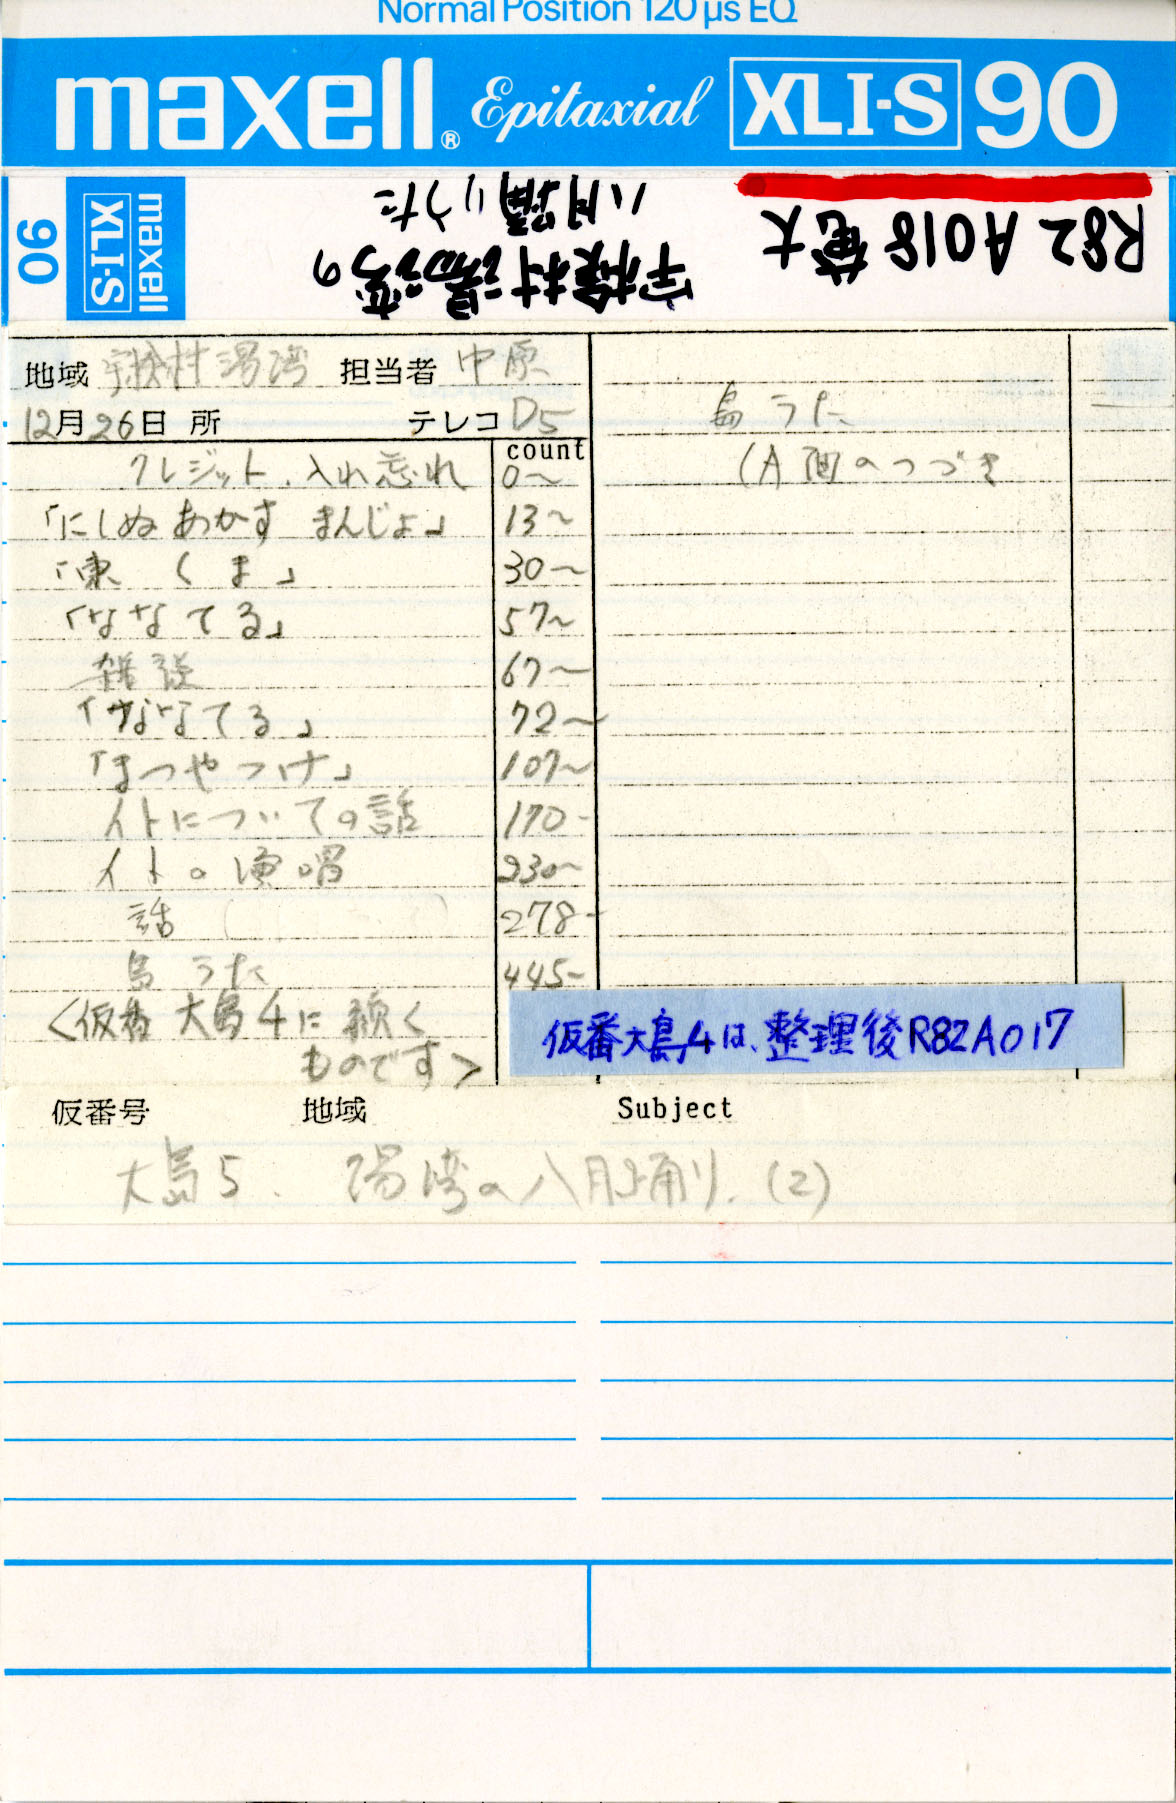 Normal Position 120 µs EQ
maxell® Epitaxial XLI-S 90
maxell XLI-S 90
R82 A018 奄大
宇検村湯湾の
八月踊りうた
地域 宇検村湯湾 担当者 中原
12月26日 所 テレコ D5
count
クレジット、入れ忘れ 0〜
「にしぬ あかす まんじょ」 13〜
「東 くま」 30〜
「ななてる」 57〜
雑談 67〜
「ななてる」 72〜
「まつやつけ」 107〜
イトについての話 170-
イトの演唱 230〜
話 278-
島うた 445-
<仮番 大島4に続く
ものです>
島うた
(A面のつづき
仮番大島4は、整理後R82A017
仮番号 地域 Subject
大島5. 湯湾の八月踊り.(2)